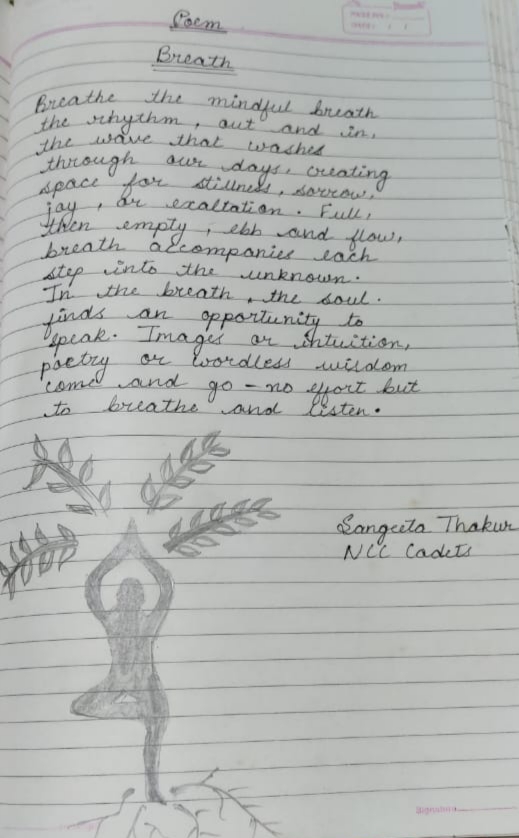 Poem
Breath
Breathe the mindful breath
the rhythm, out and in,
the wave that washes
through our days, creating
space for stillness, sorrow,
joy, or exaltation. Full,
then empty, ebb and flow,
breath accompanies each
step into the unknown.
In the breath, the soul.
finds an opportunity to
speak. Images or intuition,
poetry or wordless wisdom
come and go - no effort but
to breathe and listen.
Sangeeta Thakur
NCC Cadets